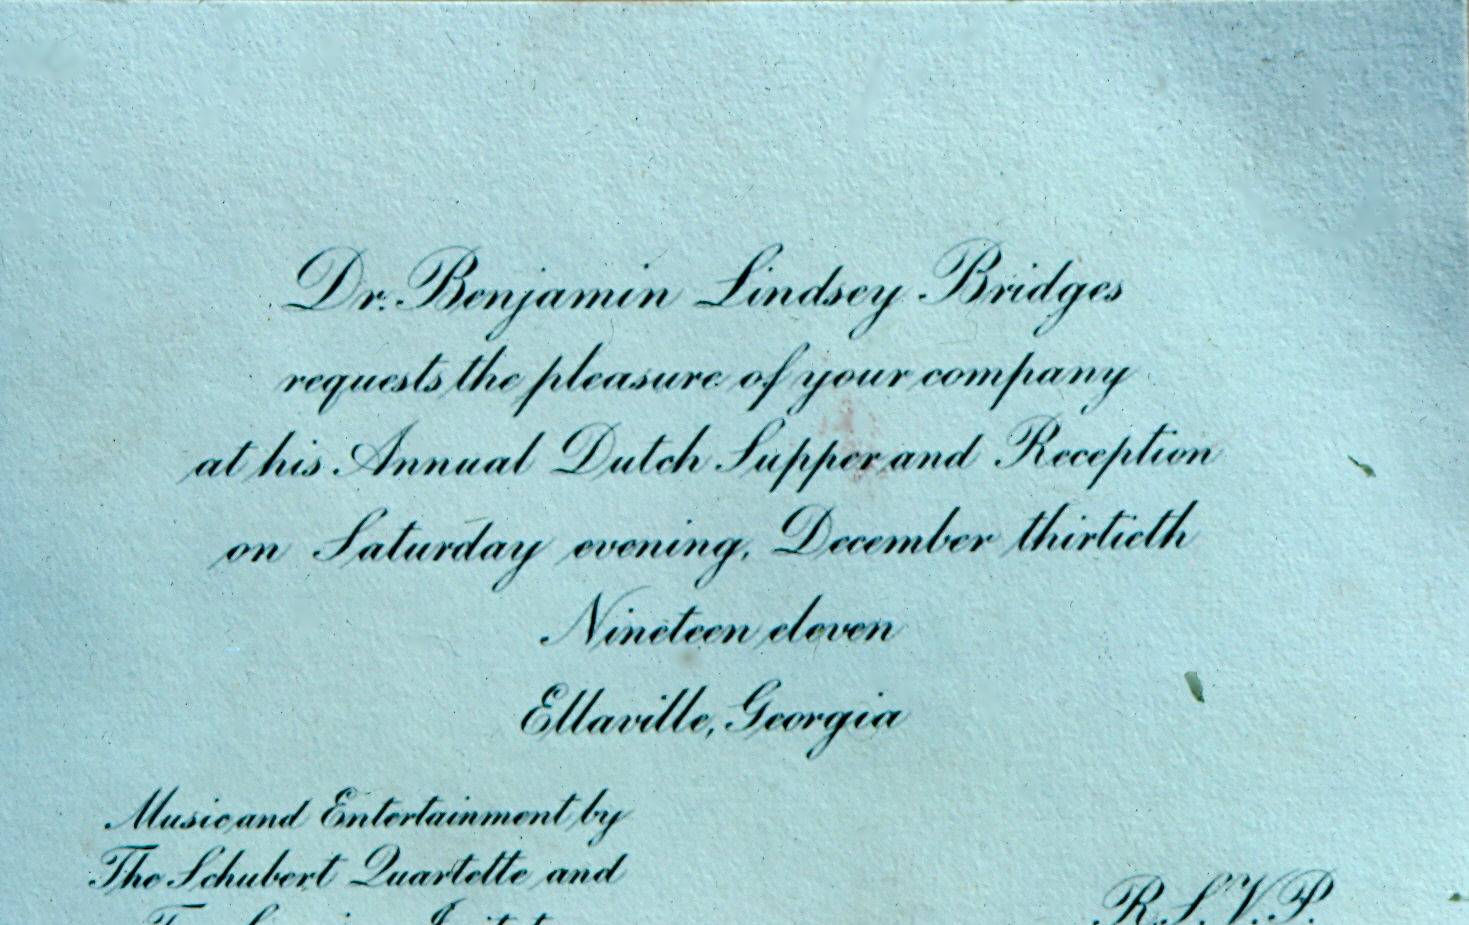 Dr. Benjamin Lindsey Bridges
requests the pleasure of your company
at his Annual Dutch Supper and Reception
on Saturday evening, December thirtieth
Nineteen eleven
Ellaville, Georgia
Music and Entertainment by
The Schubert Quartette and
R.S.V.P.